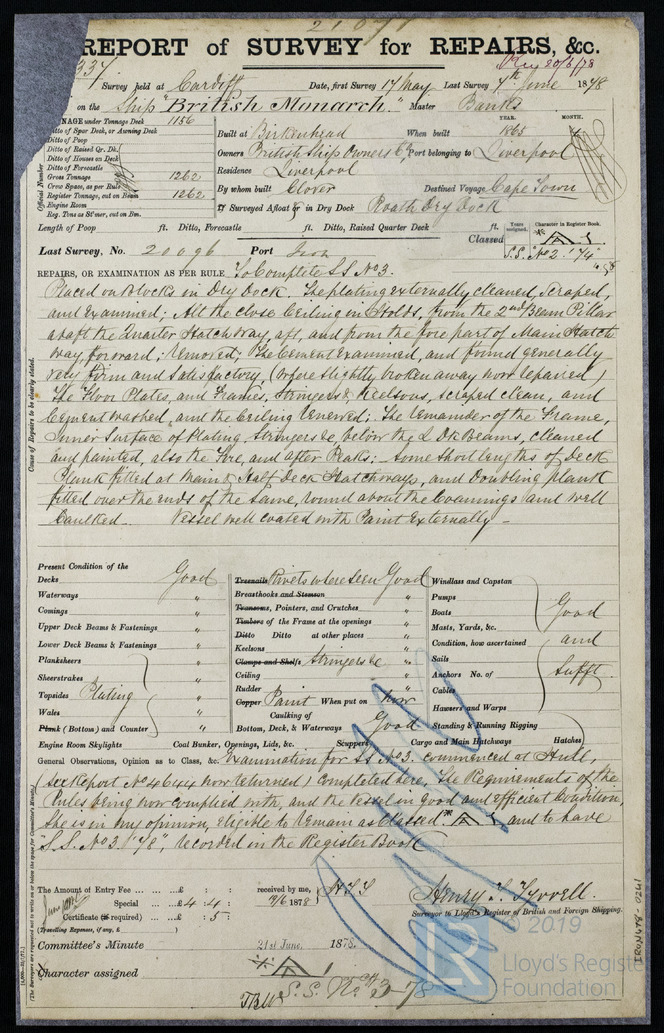 21071
REPORT of SURVEY for REPAIRS, &c.
334
Rec 20/6/78
Survey held at Cardiff Date, first Survey 17 May Last Survey 7th June 1878
on the Ship "British Monarch." Master Banks
TONNAGE under Tonnage Deck 1156
Ditto of Spar Deck, or Awning Deck
Ditto of Poop
Ditto of Raised Qr. Dk.
Ditto of Houses on Deck
Ditto of Forecastle
Gross Tonnage 1262
Crew Space, as per Rule
Register Tonnage, cut on Beam 1262
Engine Room
Reg. Tons as St'mer, cut on Bm.
Official Number
YEAR. MONTH.
Built at Birkenhead When built 1865
Owners British Ship Owners Co Port belonging to Liverpool
Residence Liverpool
By whom built Clover Destined Voyage Cape Town
If Surveyed Afloat or in Dry Dock Roath Dry Dock
Length of Poop ft. Ditto, Forecastle ft. Ditto, Raised Quarter Deck ft.
Classed
Years assigned. Character in Register Book.
S.S. No 2. 1/74
Last Survey, No. 20096 Port Iron
REPAIRS, OR EXAMINATION AS PER RULE To Complete S S No 3.
Placed on Blocks in Dry Dock. The plating externally cleaned, scraped,
and Examined; All the close Ceiling in Holds, from the 2nd Beam Pillar
abaft the Quarter Hatchway, aft, and from the fore part of Main Hatch
way, forward; removed; The Cement Examined, and found generally
very Firm and Satisfactory (where slightly broken away now repaired)
The Floor Plates, and Frames, Stringers & Keelsons, scraped clean, and
Cement washed, and the Ceiling renewed: The remainder of the Frame,
Inner Surface of Plating, Stringers &c, below the L Dk Beams, cleaned
and painted, also the Fore, and after Peaks: Some Short lengths of Deck
Plank fitted at Main & Half Deck Hatchways, and Doubling plank
fitted over the ends of the same, round about the Coamings and well
Caulked. Vessel well coated with Paint Externally
Cause of Repairs to be clearly stated.
Present Condition of the
Decks Good
Waterways "
Comings "
Upper Deck Beams & Fastenings "
Lower Deck Beams & Fastenings "
Planksheers "
Sheerstrakes "
Topsides Plating "
Wales "
Plank (Bottoms) and Counter "
Engine Room Skylights
Treenails Rivets where seen Good
Breasthooks and Stemson "
Transoms, Pointers, and Crutches "
Timbers of the Frame at the openings "
Ditto Ditto at other places "
Keelsons "
Clamps and Shelfs Stringers &c "
Ceiling "
Rudder "
Copper Paint When put on now
Caulking of
Bottom, Deck, & Waterways Good
Coal Bunker, Openings, Lids, &c. Scuppers
Windlass and Capstan
Pumps
Boats Good
Masts, Yards, &c.
Condition, how ascertained and
Sails
Anchors No. of Sufft.
Cables
Hawsers and Warps
Standing & Running Rigging
Cargo and Main Hatchways Hatches
General Observations, Opinion as to Class, &c. Examination for S S No 3. commenced at Hull,
(see Report No 4644 now returned) completed here. The Requirements of the
Rules being now complied with, and the Vessel in Good and Efficient Condition,
She is in my opinion, eligible to remain as Classed and to have
"S.S. No 3. 1/78", recorded in the Register Book
The Amount of Entry Fee ... ... £ : :
Special ... ... £ 4 : 4 :
Certificate (if required) ... : 5 :
(Travelling Expenses, if any, £ )
received by me,
19/6 1878
Henry T. Tyrrell.
Surveyor to Lloyd's Register of British and Foreign Shipping.
Committee's Minute 21st June, 1878.
Character assigned
S. S. No 3-78
(The Surveyors are requested not to write on or below the space for Committee's Minute.)
IRON478-0261
LR
© 2019
Lloyd's Register
Foundation